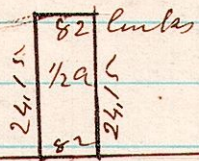 82 links
24,15
1/2 a
24,15
82